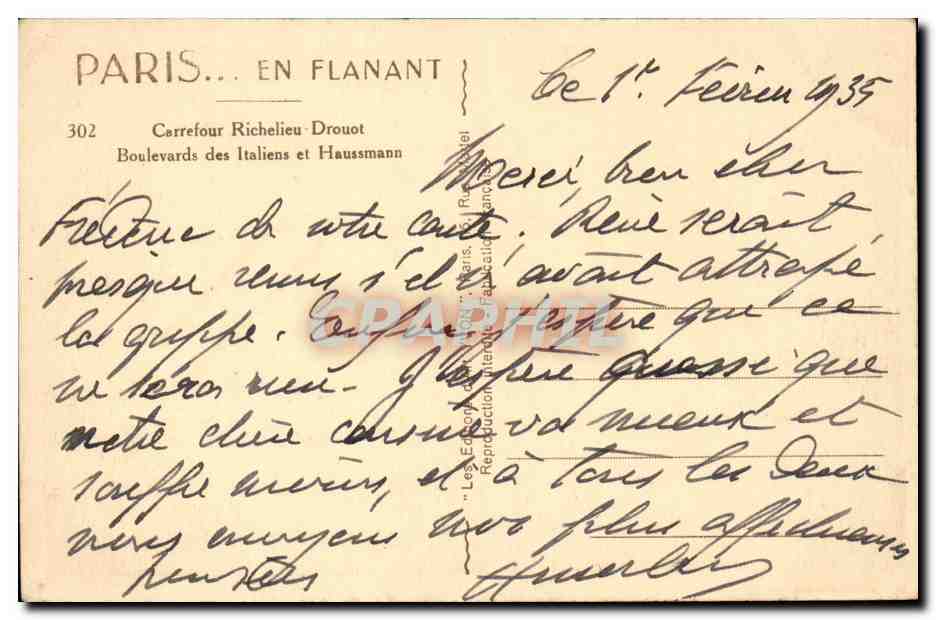 PARIS... EN FLANANT
302 Carrefour Richelieu-Drouot
Boulevards des Italiens et Haussmann
Ce 1er Février 1935
Merci, bien cher
de votre carte. René serait
presque venu s'il n'avait attrapé
la grippe. Enfin j'espère que ce
ne sera rien. J'espère aussi que
notre chère cousine va mieux et
souffre moins, et à tous les deux
nous envoyons nos plus affectueuses
pensées
"Les Editions d'Art YVON". Paris.
Reproduction interdite - Fabrication Française
CPAPHIL